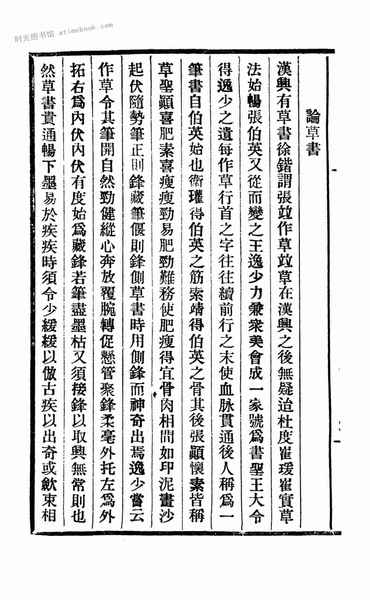 时光图书馆 - atimebook.com
論草書
漢興有草書徐鍇謂張竝作草竝草在漢興之後無疑迨杜度崔瑗崔實草
法始暢張伯英又從而變之王逸少力兼衆美會成一家號爲書聖王大令
得逸少之遺每作草行首之字往往續前行之末使血脉貫通後人稱爲一
筆書自伯英始也衛瓘得伯英之筋索靖得伯英之骨其後張顚懷素皆稱
草聖顚喜肥素喜瘦瘦勁易肥勁難務使肥瘦得宜骨肉相間如印泥畫沙
起伏隨勢筆正則鋒藏筆偃則鋒側草書時用側鋒而神奇出焉逸少嘗云
作草令其筆開自然勁健縱心奔放覆腕轉促懸管聚鋒柔毫外托左爲外
拓右爲內伏內伏有度始爲藏鋒若筆盡墨枯又須接鋒以取興無常則也
然草書貴通暢下墨易於疾疾時須令少緩緩以倣古疾以出奇或斂束相